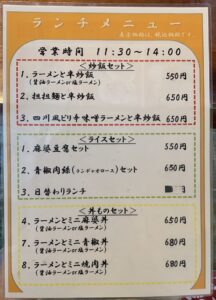 ランチメニュー
表示価格は、税込価格です。
営業時間 11:30~14:00
<炒飯セット>
1. ラーメンと半炒飯 550円
(醤油ラーメンか塩ラーメン)
2. 担担麺と半炒飯 650円
3. 四川風ピリ辛味噌ラーメンと半炒飯 650円
<ライスセット>
1. 麻婆豆腐セット 550円
2. 青椒肉絲(チンジャオロース)セット 650円
3. 日替わりランチ
<丼ものセット>
ラーメンとミニ麻婆丼 650円
(醤油ラーメンか塩ラーメン)
7. ラーメンとミニ青椒丼 680円
(醤油ラーメンか塩ラーメン)
8. ラーメンとミニ焼肉丼 680円
(醤油ラーメンか塩ラーメン)